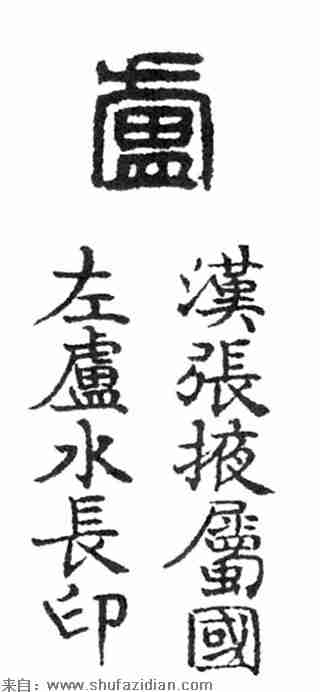 盧
漢張掖屬國
左盧水長印
来自：www.shufazidian.com